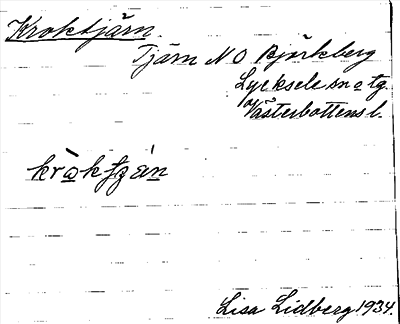 Kroktjärn.
Tjärn N O Björkberg
Lycksele sn o tg.
Västerbottens l.
Lisa Lidberg 1934.